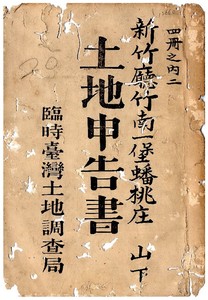 四冊之內二
新竹廳竹南一堡蟠桃庄 山下
土地申告書
臨時臺灣土地調查局